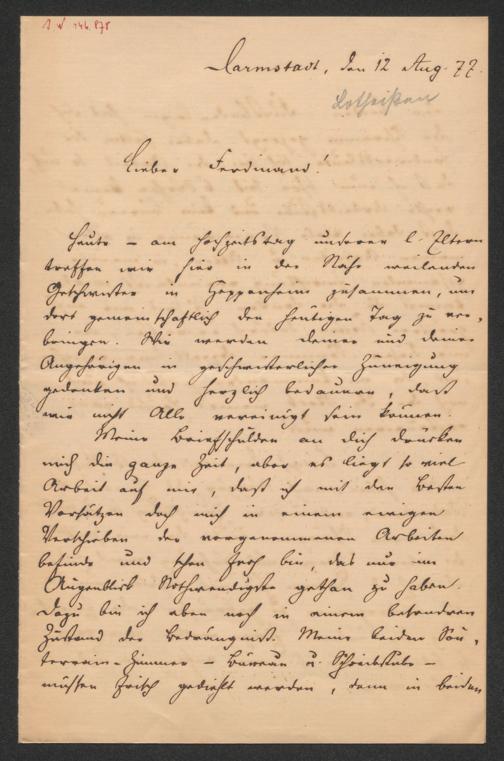 I. N. 146.875
Darmstadt, den 12 Aug. 77.
Rotheißen
Lieber Ferdinand!
Heute – am Hochzeitstag unserer l. Eltern
treffen wir hier in der Nähe weilenden
Geschwister in Heppenheim zusammen, um
dort gemeinschaftlich den heutigen Tag zu ver-
bringen. Wir werden deiner und deiner
Angehörigen in geschwisterlicher Zuneigung
gedenken und herzlich bedauern, daß
wir nicht Alle vereinigt sein können.
Meine Briefschulden an dich drücken
mich die ganze Zeit, aber es liegt so viel
Arbeit auf mir, daß ich mit den Besten
Vorsätzen doch mich in einem ewigen
Verschieben der vorgenommenen Arbeiten
befinde und schon froh bin, das nur im
Augenblick Nothwendigste gethan zu haben.
Dazu bin ich eben noch in einem besonderen
Zustand der Bedrängniß. Meine beiden Sou-
terrain-Zimmer – Büreau u. Schreibstube –
müssen frisch gedielt werden, denn in beiden